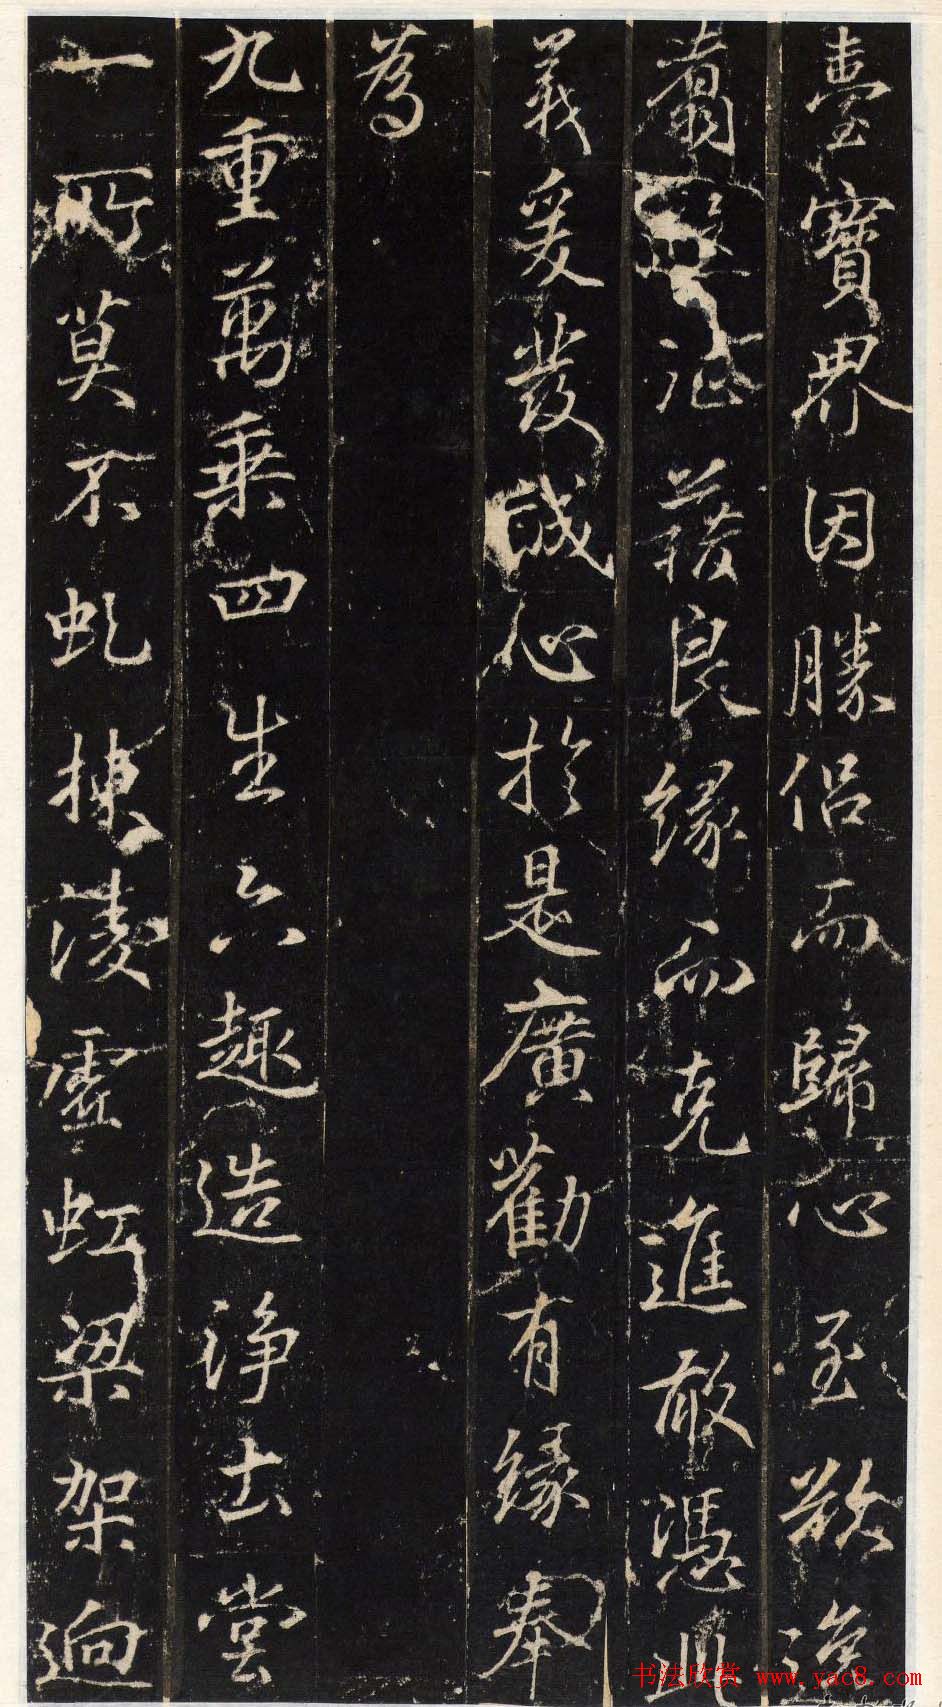 臺寶界因勝侣而歸心至歡
翥 沚藉良緣而克進敢憑此
義爰發誠心於是廣勸有緣奉
為
九重萬乘四生六趣造淨土堂
一所莫不虬棟淩雲虹梁架迥
书法欣赏 www.yac8.com